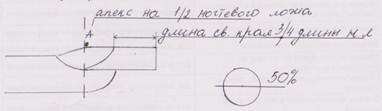 апекс на 1/2 ногтевого ложа
A
длина св. края 3/4 длины н. л
50%